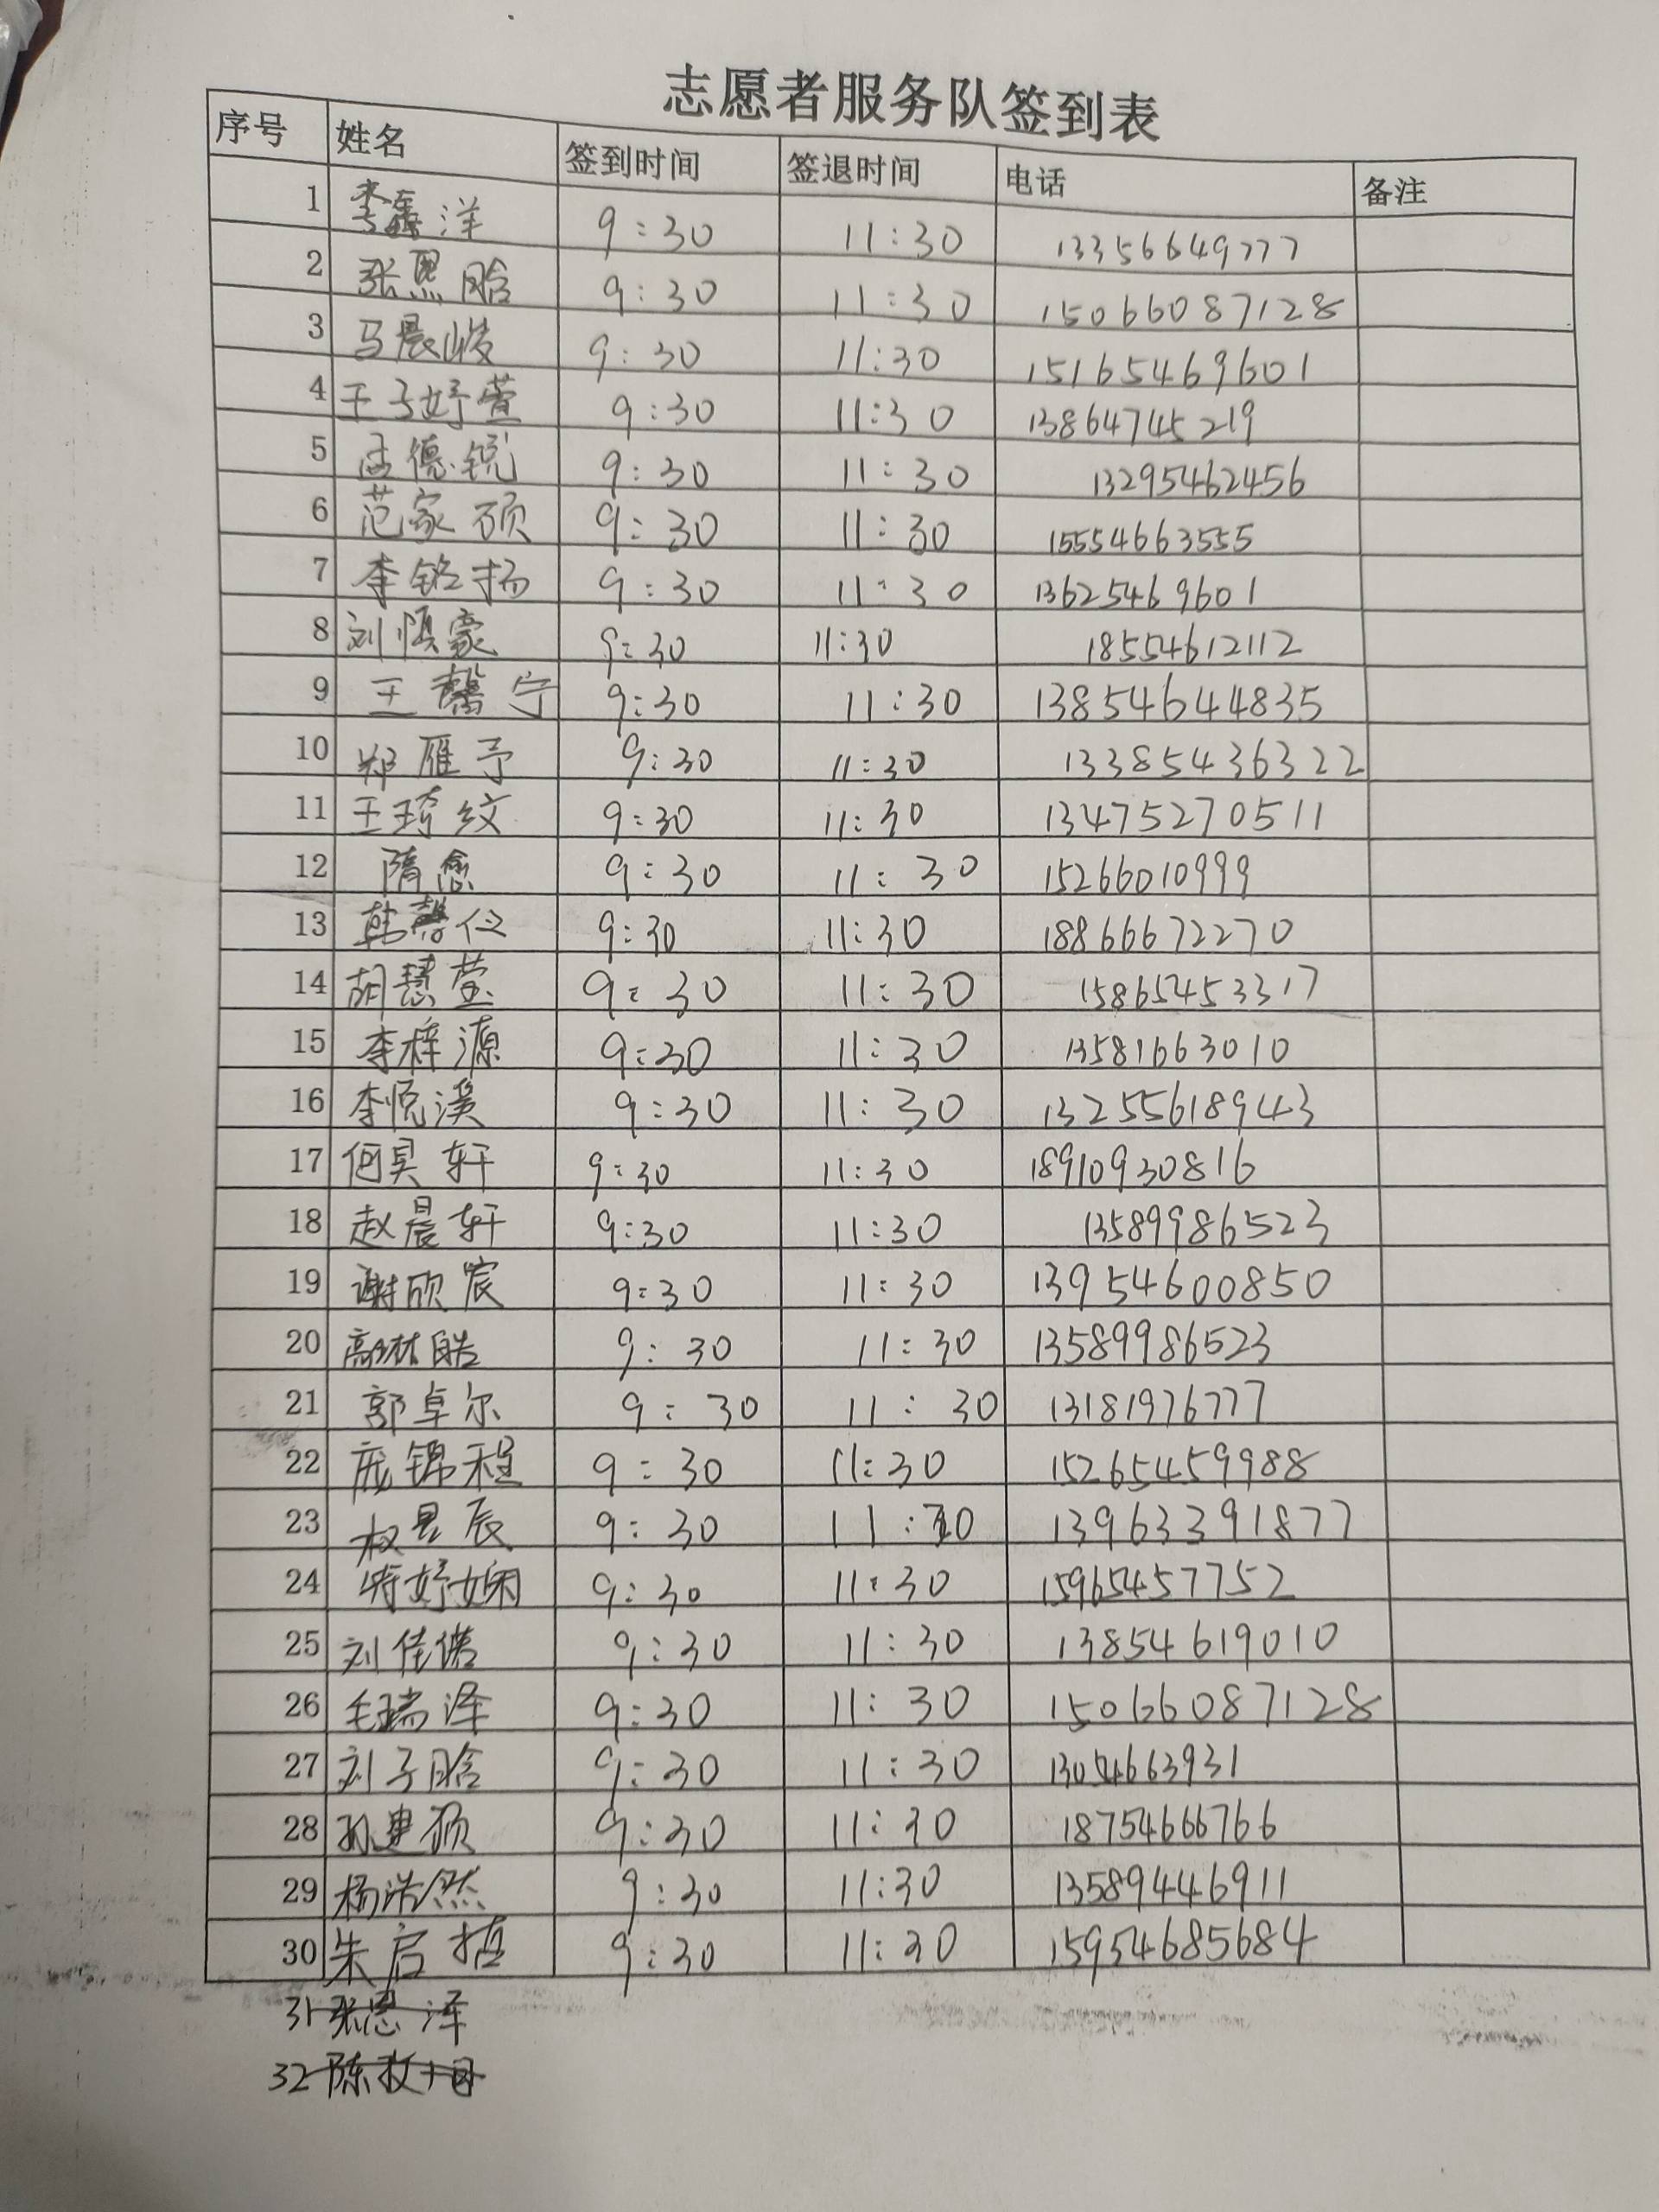 志愿者服务队签到表
序号 姓名 签到时间 签退时间 电话 备注
1 李鑫洋 9:30 11:30 13356649777
2 张恩晗 9:30 11:30 15066087128
3 马晨峻 9:30 11:30 15165469601
4 王子妤萱 9:30 11:30 13864745219
5 孟德锐 9:30 11:30 13295462456
6 范家硕 9:30 11:30 15554663555
7 李铭扬 9:30 11:30 13625469601
8 刘慎豪 9:30 11:30 18554612112
9 王馨宁 9:30 11:30 13854644835
10 郑雁予 9:30 11:30 13385436322
11 王琦纹 9:30 11:30 13475270511
12 隋愈 9:30 11:30 15266010999
13 韩馨仪 9:30 11:30 18866672270
14 胡慧莹 9:30 11:30 15865453317
15 李梓源 9:30 11:30 13581663010
16 李悦溪 9:30 11:30 13255618943
17 何昊轩 9:30 11:30 18910930816
18 赵晨轩 9:30 11:30 13589986523
19 谢欣宸 9:30 11:30 13954600850
20 高林皓 9:30 11:30 13589986523
21 郭卓尔 9:30 11:30 13181976777
22 庞锦程 9:30 11:30 15265459988
23 权昱辰 9:30 11:30 13963391877
24 妤娴 9:30 11:30 15965457752
25 刘佳偌 9:30 11:30 13854619010
26 毛瑞泽 9:30 11:30 15066087128
27 刘子晗 9:30 11:30 13054663931
28 孙建硕 9:30 11:30 18754666766
29 杨浩然 9:30 11:30 13589446911
30 朱启植 9:30 11:30 15954685684
31 张恩泽
32 陈